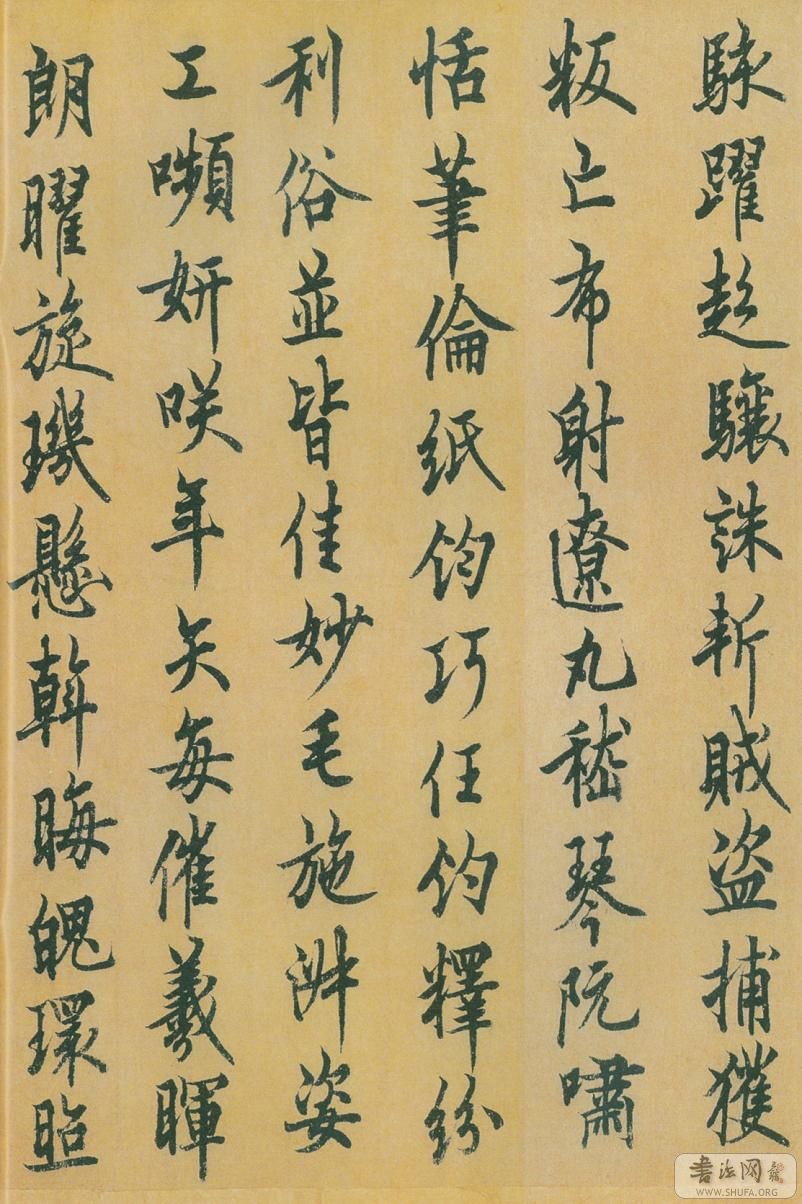 駭躍超驤誅斬賊盜捕獲
叛亡布射遼丸嵇琴阮嘯
恬筆倫紙鈞巧任釣釋紛
利俗並皆佳妙毛施淑姿
工嚬妍咲年矢每催羲暉
朗曜旋璣懸斡晦魄環照
书法网
WWW.SHUFA.ORG